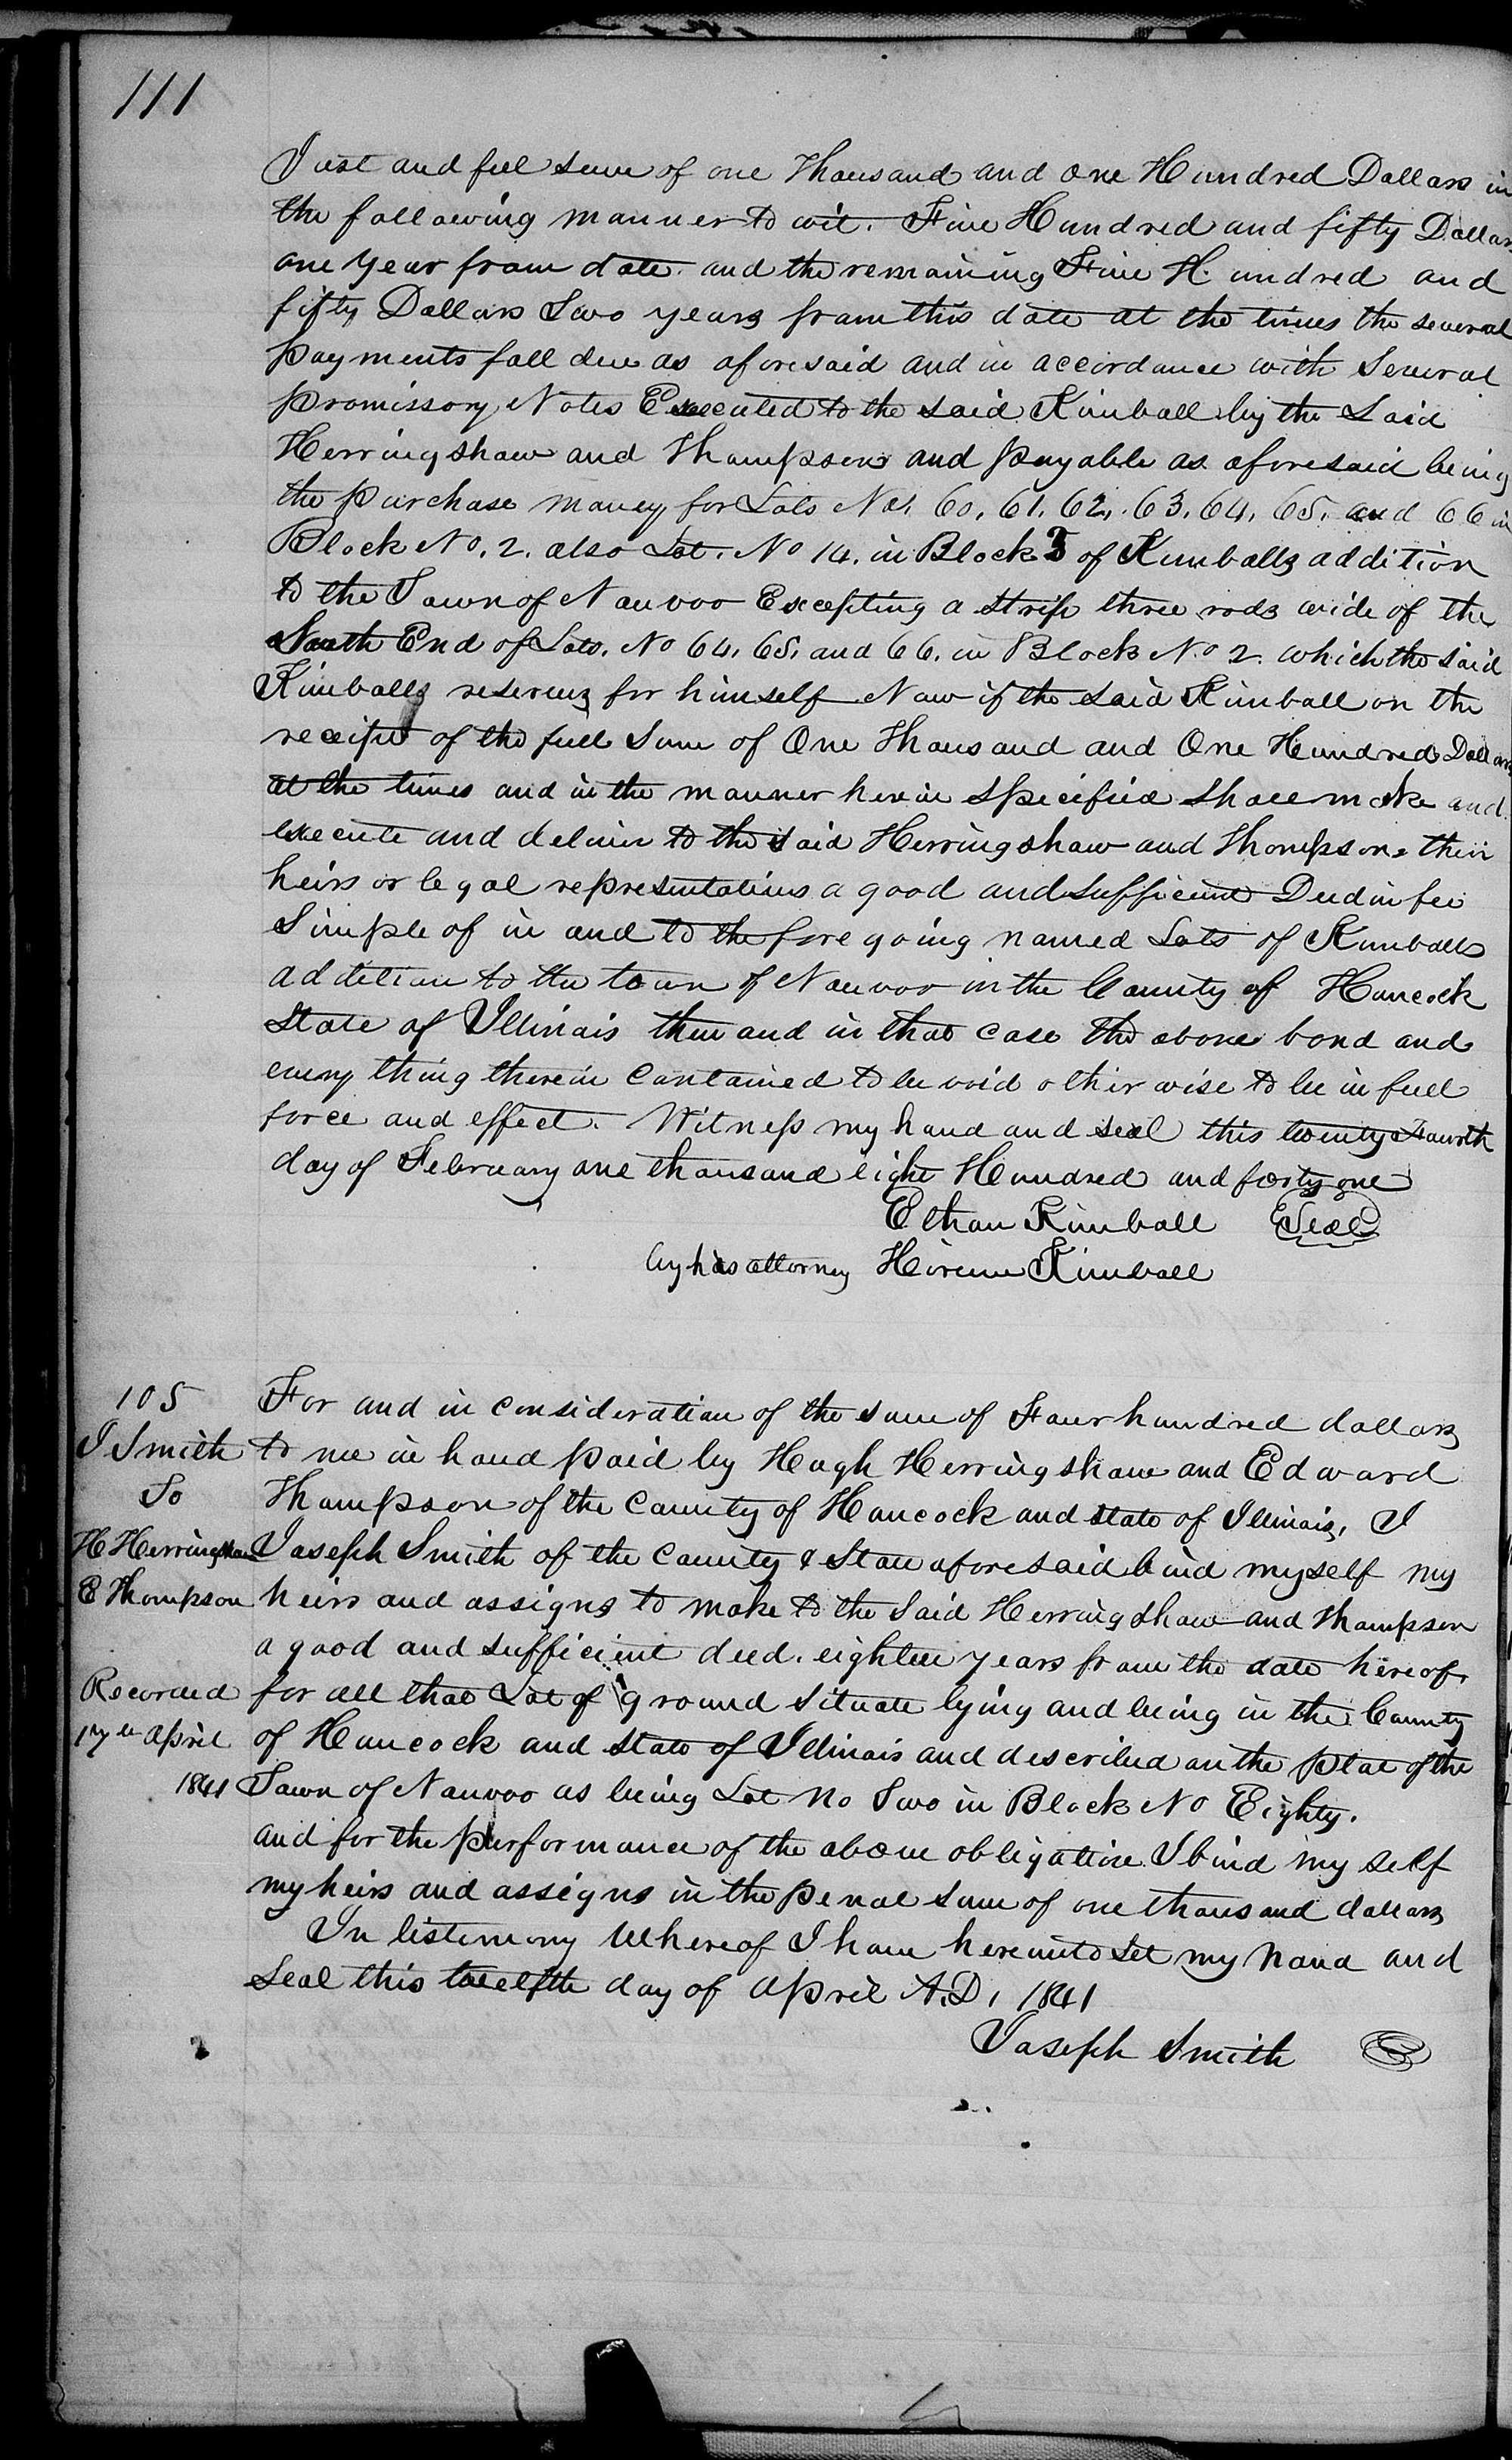 111
Just and full sum of one Thousand and One Hundred Dollars in
the following manner to wit. Five Hundred and fifty Dollars
one Year from date. and the remaining Five Hundred and
fifty Dollars Two years from this date at the times the several
payments fall due as aforesaid and in accordance with Several
promissory Notes Executed to the said Kimball by the Said
Herringshaw and Thompson and payable as aforesaid being
the purchase money for Lots Nos. 60, 61, 62, 63, 64, 65, and 66 in
Block No. 2. also Lot. No 14. in Block 3 of Kimballs addition
to the Town of Nauvoo Excepting a strip three rods wide of the
South End of Lots. No 64, 65, and 66. in Block No 2. which the said
Kimballs reserves for himself Now if the said Kimball on the
receipt of the full Sum of One Thousand and One Hundred Dollars
at the times and in the manner herein specified shall make and
execute and deliver to the said Herringshaw and Thompson, their
heirs or legal representatives a good and sufficient Deed in fee
Simple of in and to the fore going named Lots of Kimballs
addition to the town of Nauvoo in the County of Hancock
State of Illinois then and in that case the above bond and
every thing therein contained to be void otherwise to be in full
force and effect. Witness my hand and seal this twenty Fourth
day of February one thousand eight Hundred and forty one
Ethan Kimball Seal
by his attorney Hirum Kimball
105
J Smith
To
H Herringshaw
E Thompson
Recorded
17th April
1841
For and in consideration of the sum of Four hundred dollars
to me in hand paid by Hugh Herringshaw and Edward
Thompson of the County of Hancock and state of Illinois, I
Joseph Smith of the County & State aforesaid bind myself my
heirs and assigns to make to the Said Herringshaw and Thompson
a good and sufficient deed. eighteen years from the date hereof,
for all that Lot of ground Situate lying and being in the County
of Hancock and state of Illinois and described on the plat of the
Town of Nauvoo as being Lot No Two in Block No Eighty.
and for the performance of the above obligation I bind my self
my heirs and assigns in the penal sum of one thousand dollars
In testimony Whereof I have hereunto Set my hand and
Seal this twelfth day of April A.D, 1841
Joseph Smith